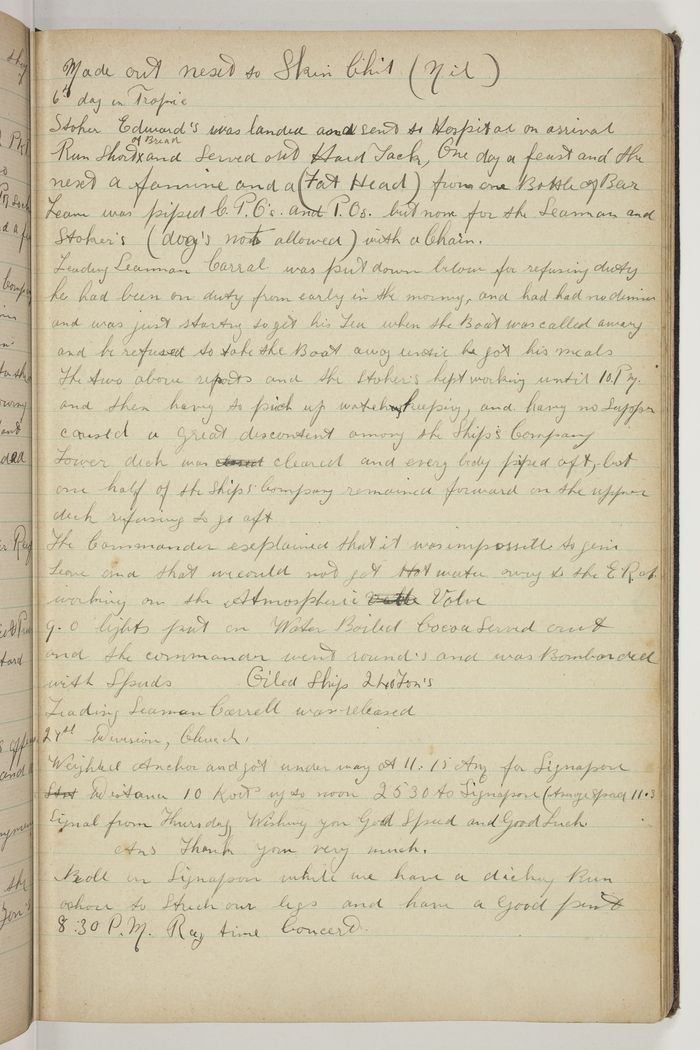 Made out next to Skin Chit (Nil)
6th day in Tropic
Stoker Edward's was landed and sent to Hospital on arrival
of Bread
Run Short and Served out Hard Tack, One day a feast and the
next a famine and a (Fat Head) from one Bottle of Beer
Leave was piped C.P.O's. and P.Os. but none for the Seaman and
Stoker's (dog's not allowed) with a Chain.
Leading Seaman Carral was put down below for refusing duty
he had been on duty from early in the morning, and had had no dinner
and was just starting to get his Tea when the Boat was called away
and he refused to take the Boat away until he got his meals
The two above reports and the Stoker's kept working until 10.P.M.
and then having to pick up watch keeping, and having no Supper
caused a great discontent among the Ship's Company
Lower deck was cleared and every body piped aft, but
one half of the Ships Company remained forward on the upper
deck refusing to go aft
The Commander explained that it was impossible to give
leave and that we could not get Hot water owing to the E.R. at
working on the Atmospheric Valve
9.0 lights put on Water Boiled Cocoa Served out
and the commander went round's and was Bombarded
with Spuds Oiled Ship 240 Ton's
Leading Seaman Carrell was released
Division, Church.
Weighed Anchor and got under way at 11.15 Am for Signapore
Distance 10 Knots up to noon 2530 to Signapore (Average Speed 11.5
Signal from Thursday Wishing you God Speed and Good Luck
Ans Thank you very much.
Roll on Signapore while we have a dickey Run
ashore to Strech our legs and have a Good pint
8.30 P.M. Rag time Concerd.